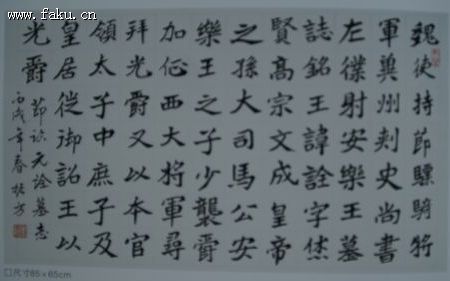 www.faku.cn
魏使持節驃騎將
軍冀州刺史尚書
左僕射安樂王墓
誌銘王諱詮字烋
賢高宗文成皇帝
之孫大司馬公安
樂王之子少襲爵
加征西大將軍尋
拜光爵又以本官
領太子中庶子及
皇居徙御詔王以
光爵
節臨元詮墓志
丙戌年春
□尺寸85×65cm